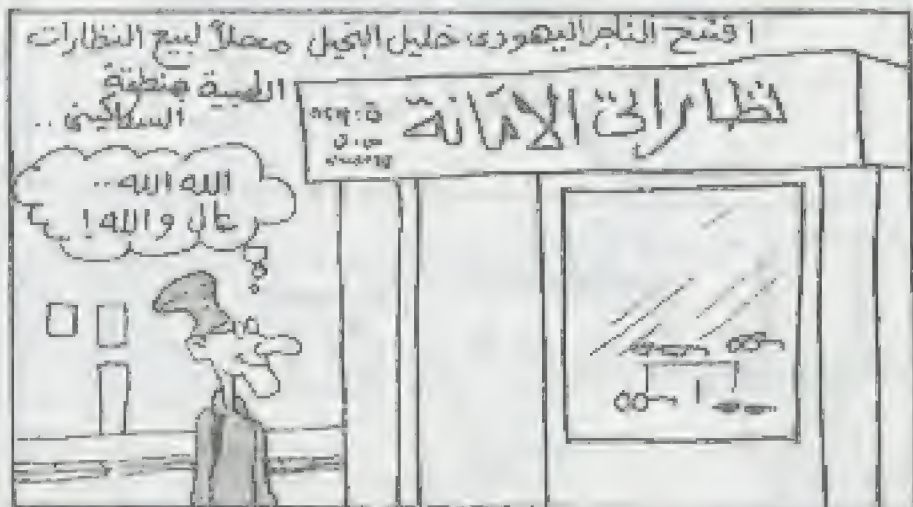 افتتح التاجر اليهودى خليل البخيل محلاً لبيع النظارات
الطبية بمنطقة
السكاكينى ..
نظاراتى الامانة
س.ت
الله الله ..
عال والله !